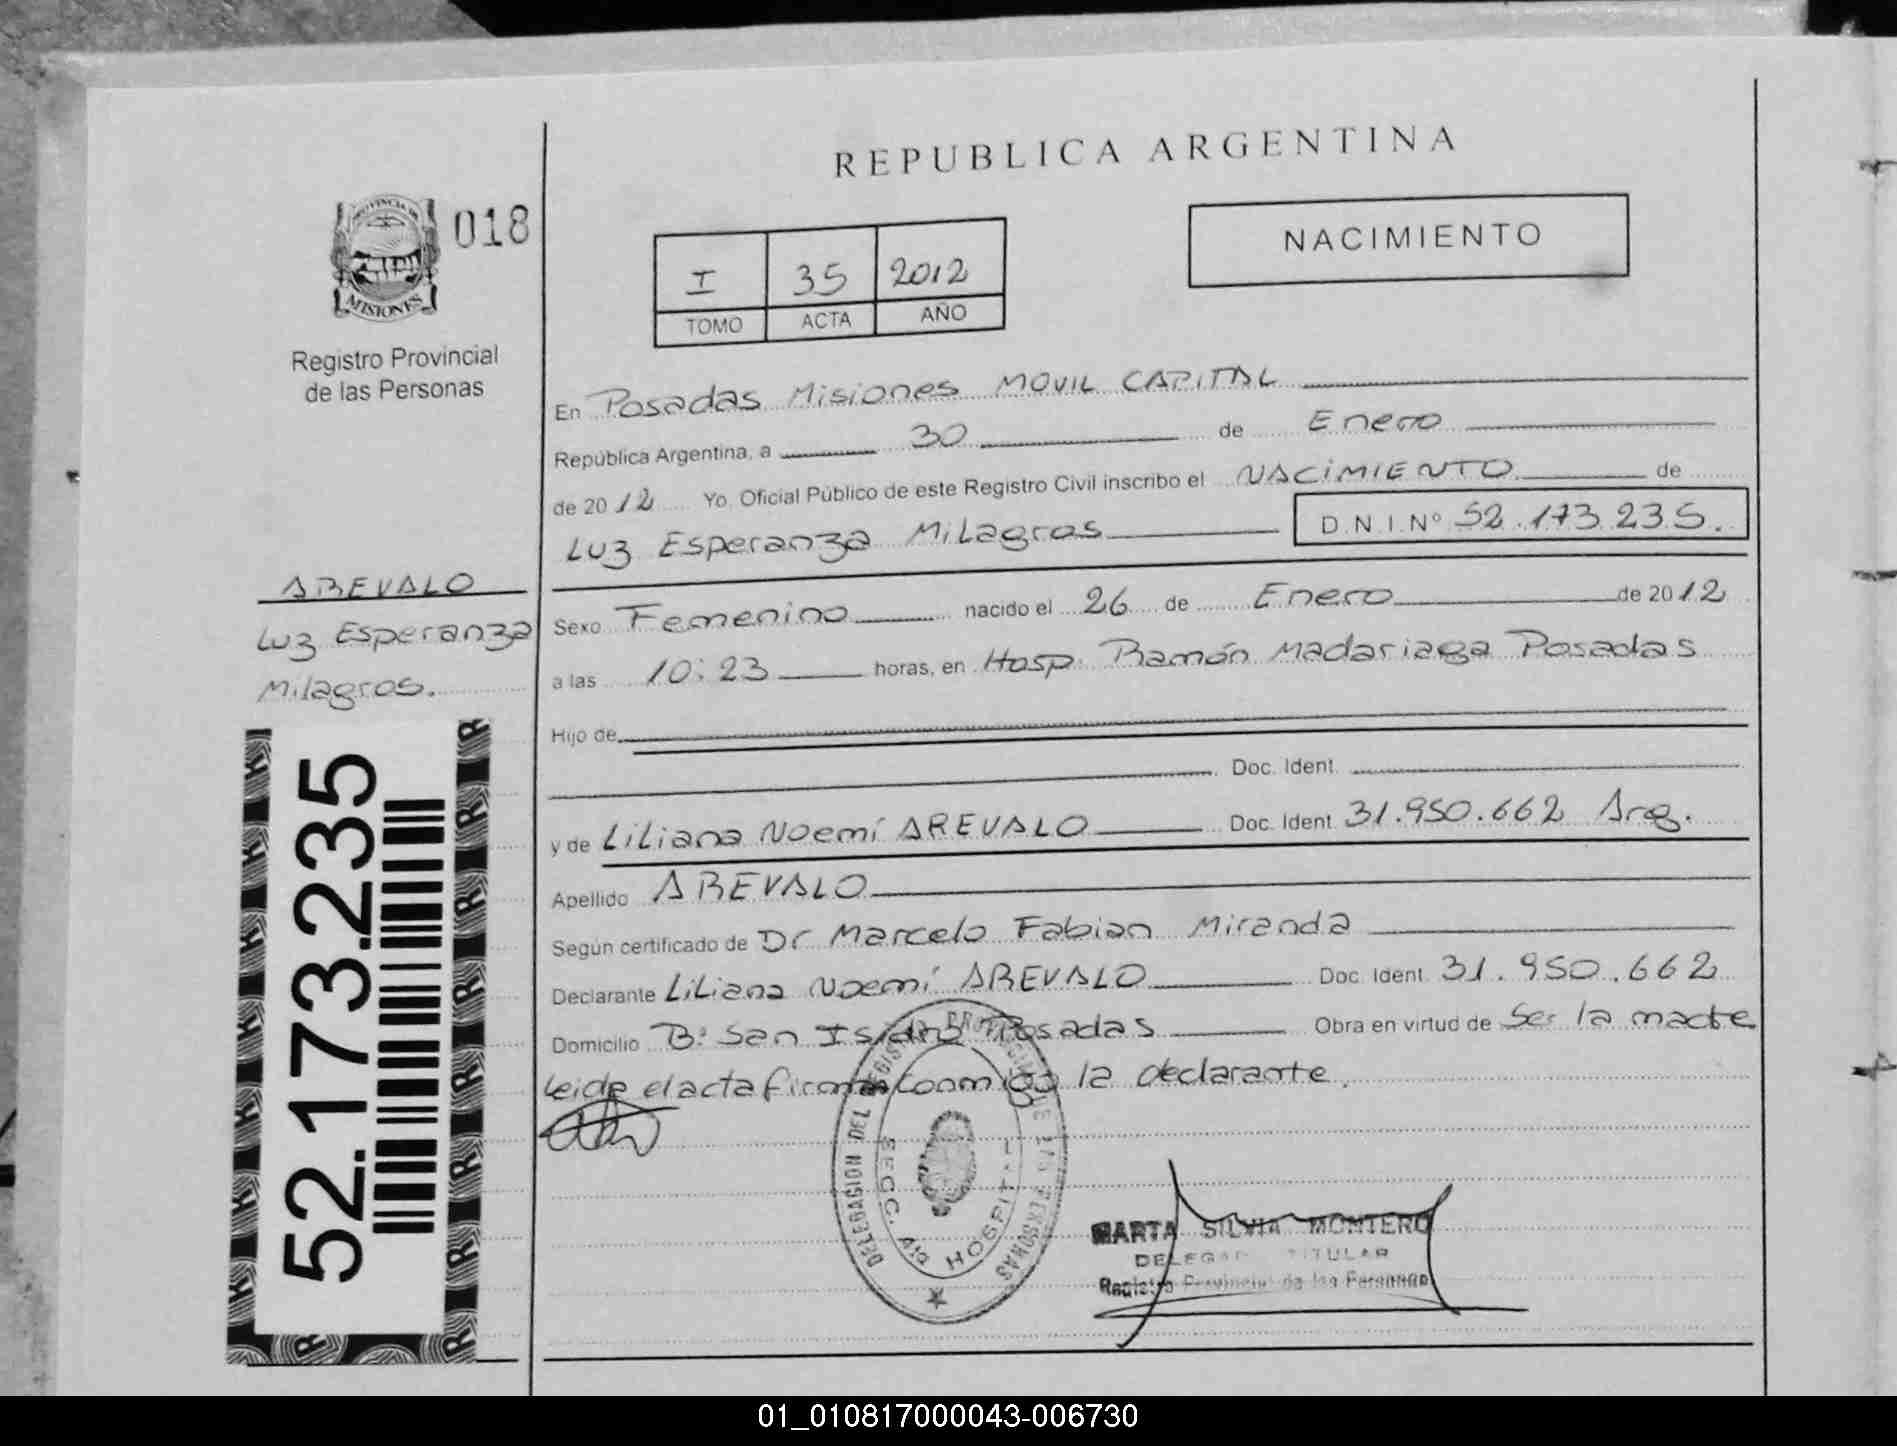 REPUBLICA ARGENTINA
PROVINCIA DE
MISIONES
018
NACIMIENTO
I 35 2012
TOMO ACTA AÑO
Registro Provincial
de las Personas
En Posadas Misiones MOVIL CAPITAL
República Argentina, a 30 de Enero
de 2012 Yo, Oficial Público de este Registro Civil inscribo el NACIMIENTO de
Luz Esperanza Milagros D.N.I.Nº 52.173.235.
AREVALO
Luz Esperanza
Milagros.
Sexo Femenino nacido el 26 de Enero de 2012
a las 10:23 horas, en Hosp. Ramón Madariaga Posadas
Hijo de
Doc. Ident.
y de Liliana Noemí AREVALO Doc. Ident 31.950.662 Arg.
Apellido AREVALO
Según certificado de Dr Marcelo Fabian Miranda
Declarante Liliana Noemí AREVALO Doc. Ident. 31.950.662
Domicilio Bº San Isidro Posadas Obra en virtud de Ser la madre
Leida el acta firma conmigo la declarante.
52.173.235
DELEGACION DEL REGISTRO PROVINCIAL DE LAS PERSONAS
SECC. HOSPITAL
MARTA SILVIA MONTERO
DELEGADA TITULAR
Registro Provincial de las Personas
01_010817000043-006730